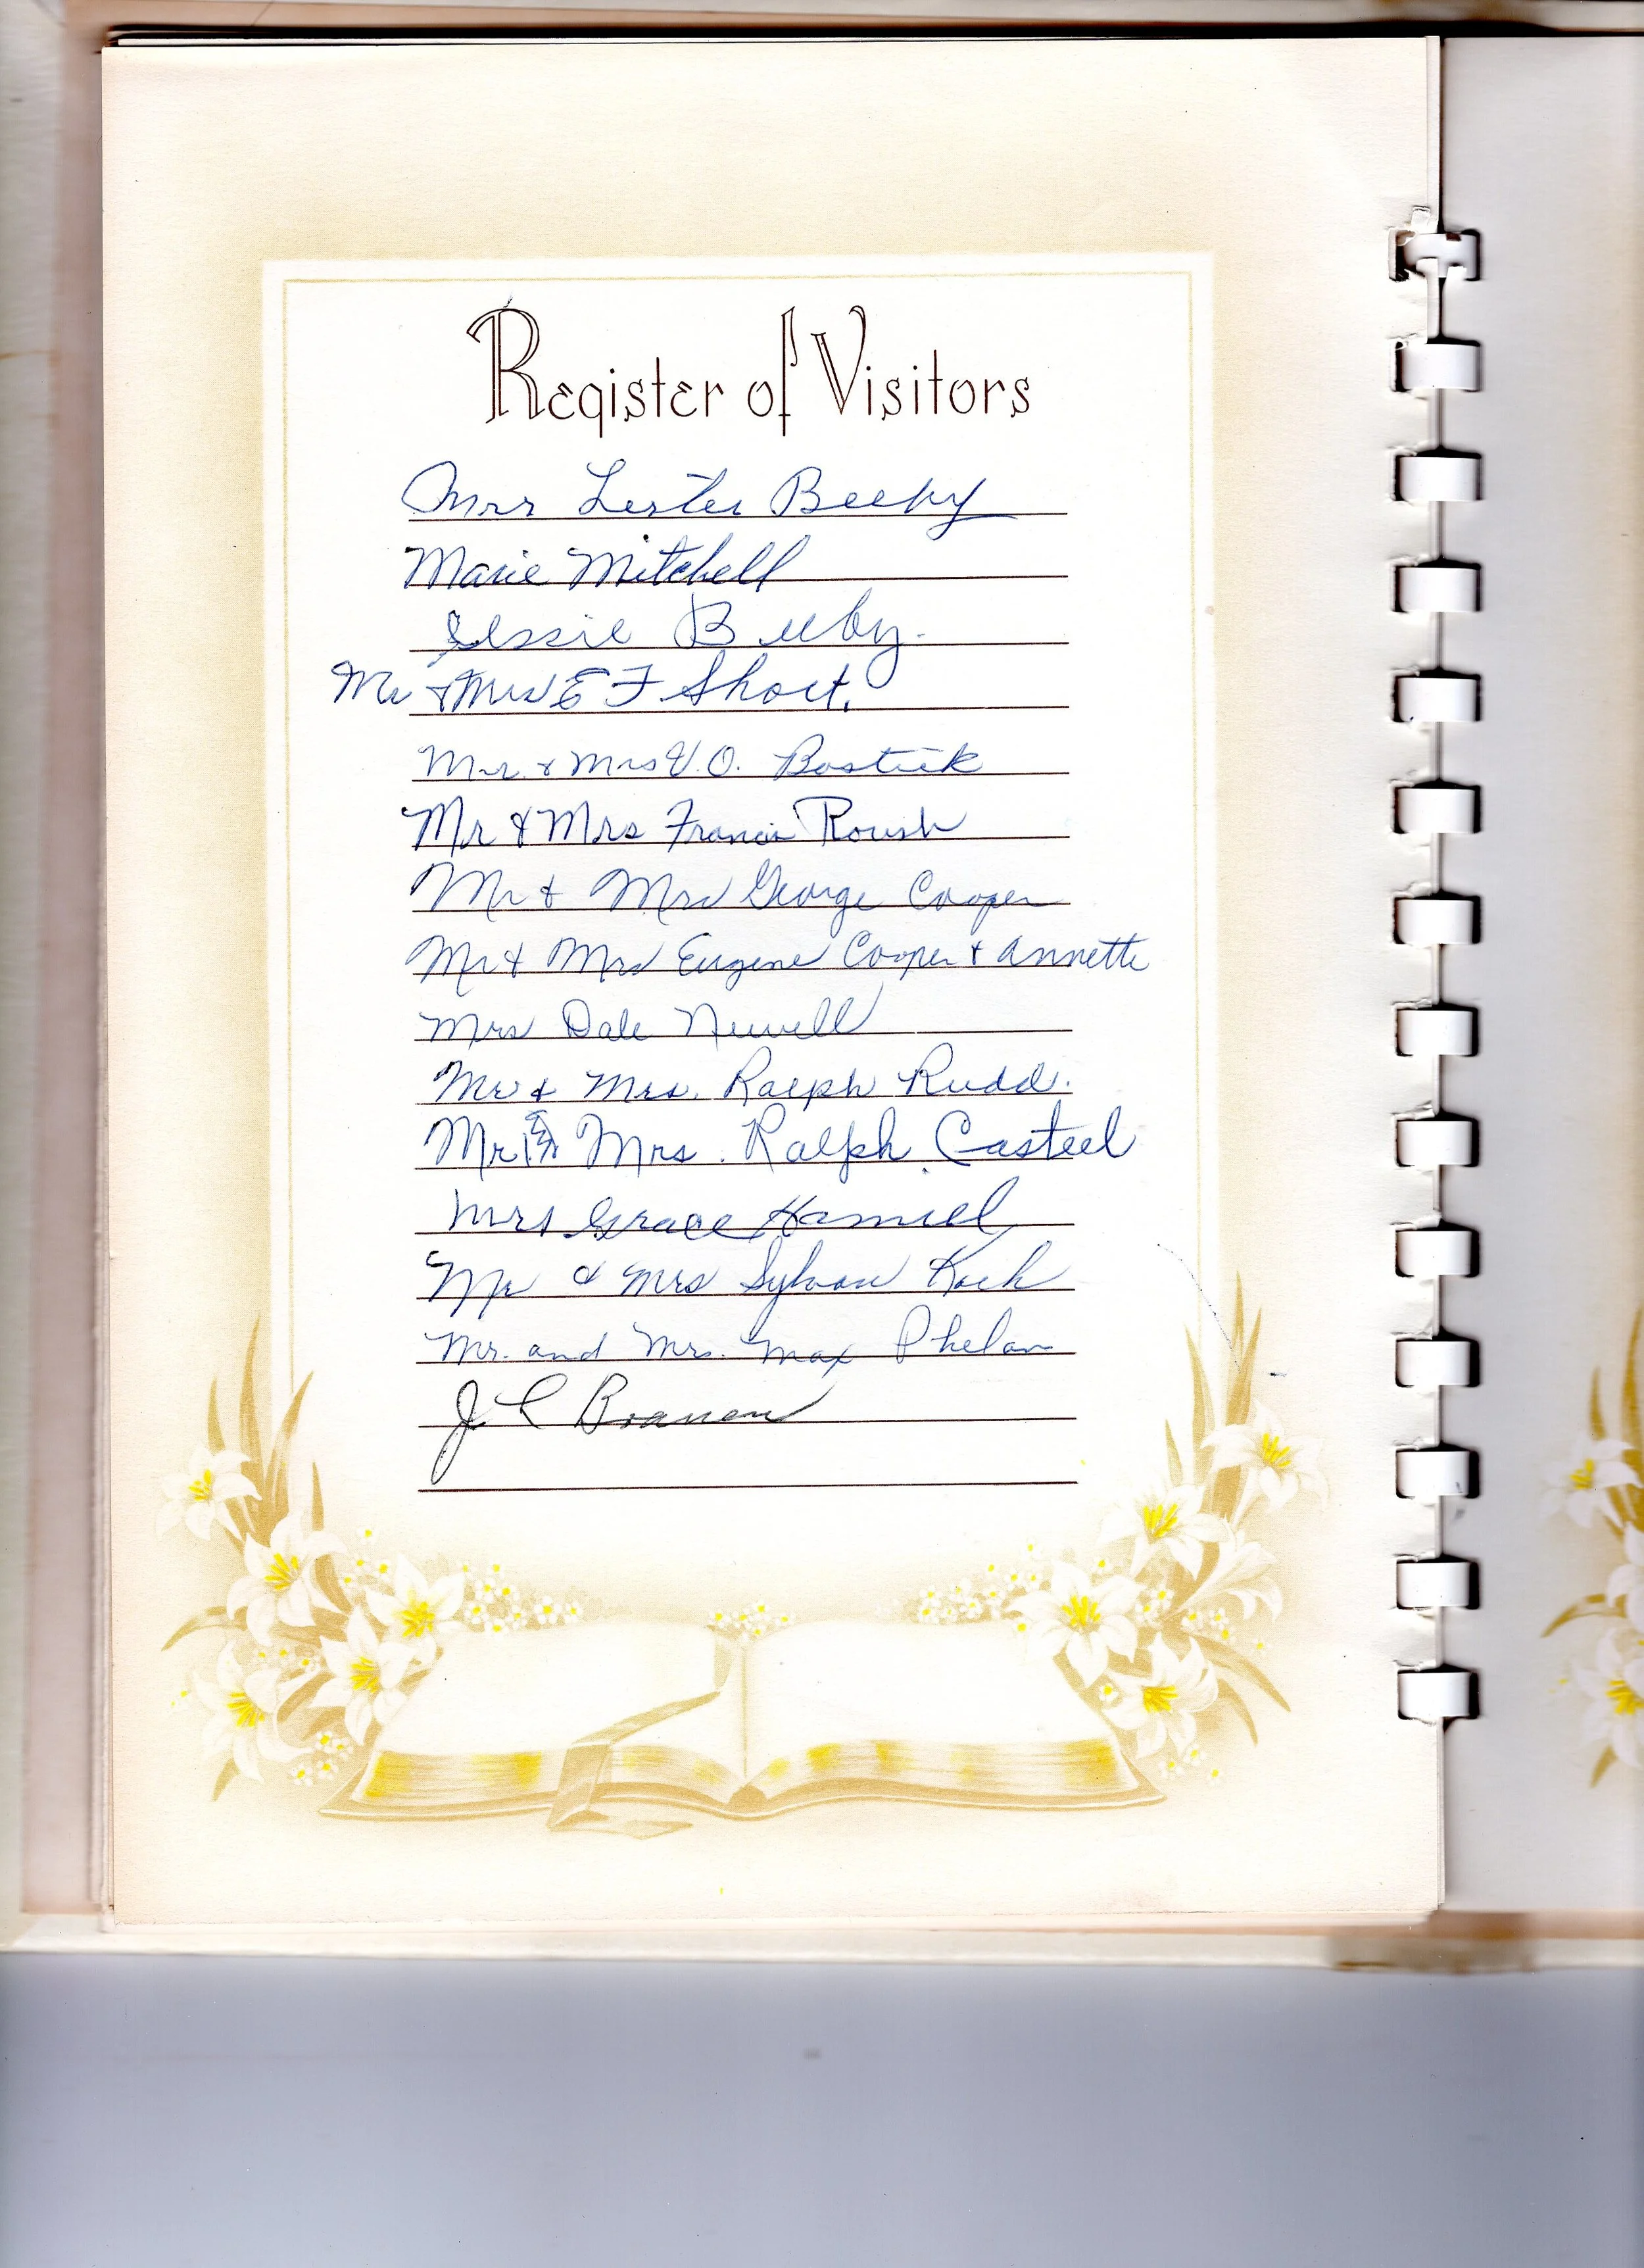 Register of Visitors
Mrs Lester Beeby
Marie Mitchell
Essie Beeby.
Mr & Mrs E F Short.
Mr & Mrs V.O. Bostick
Mr & Mrs Francis Roush
Mr & Mrs George Cooper
Mr & Mrs Eugene Cooper & Annette
Mrs Dale Newell
Mr & Mrs. Ralph Rudd.
Mr & Mrs. Ralph Casteel
Mrs Grace Hamiel
Mr & Mrs Sylvan Koch
Mr. and Mrs. Max Phelan
J C Branen